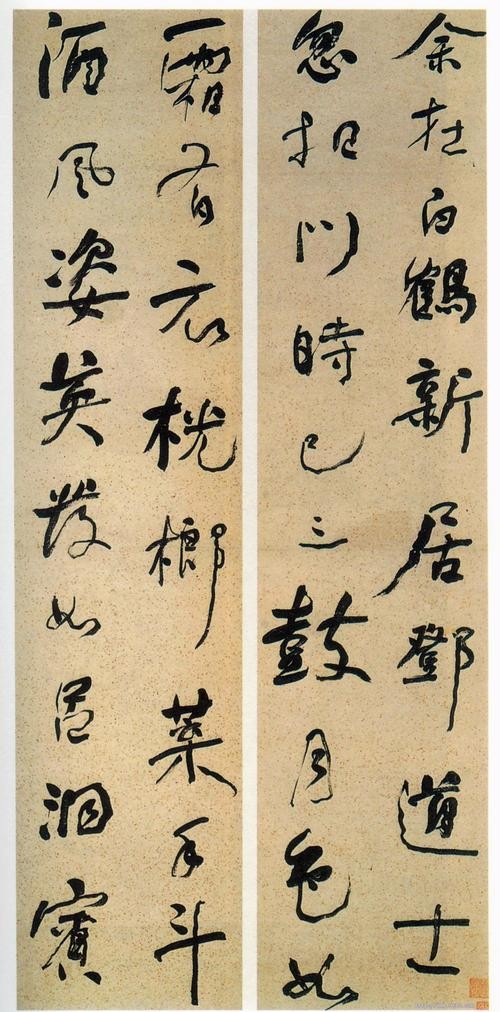 余在白鶴新居鄧道士
忽扣門時已三鼓月色如
霜有衣桄榔葉手斗
酒風姿英發如呂洞賓